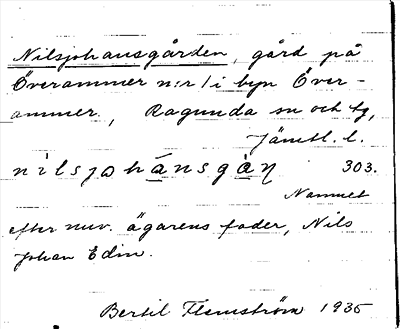 Nilsjohansgården, gård på
Överammer n:r 1 i byn Över-
ammer, Ragunda sn och tg,
Jämtl. l.
nilsjohánsgàɳ 303.
Namnet
efter nuv. ägarens fader, Nils
Johan Edin.
Bertil Flemström 1935